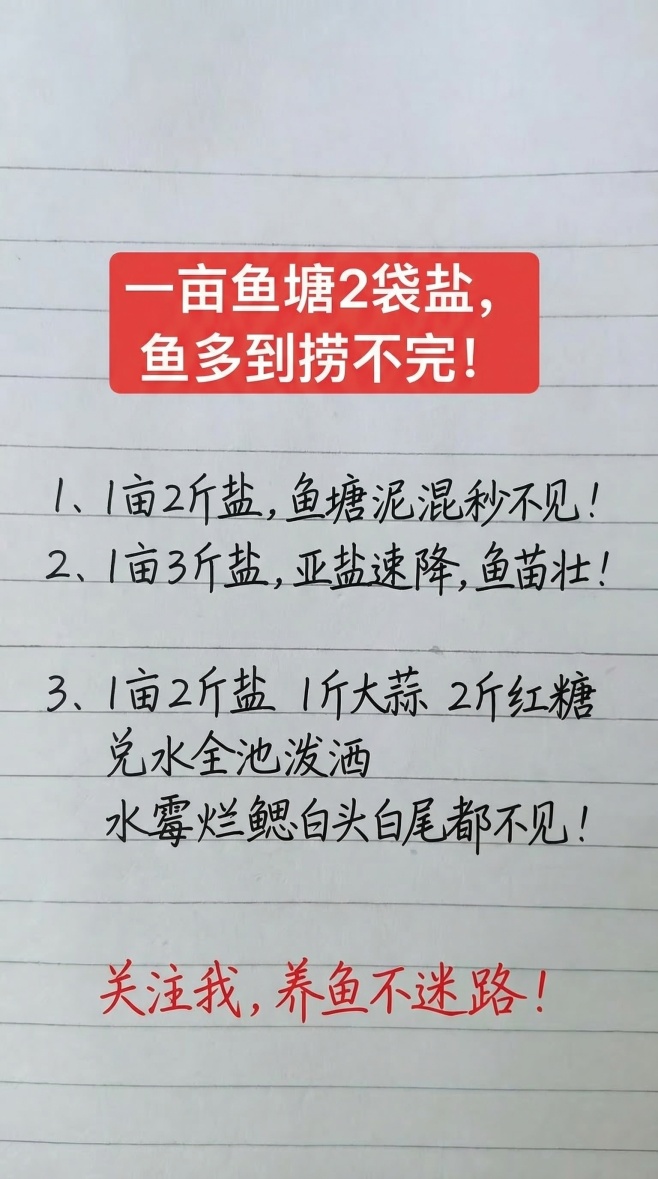 一亩鱼塘2袋盐，
鱼多到捞不完！
1、1亩2斤盐，鱼塘泥混秒不见！
2、1亩3斤盐，亚盐速降，鱼苗壮！
3、1亩2斤盐 1斤大蒜 2斤红糖
兑水全池泼洒
水霉烂鳃白头白尾都不见！
关注我，养鱼不迷路！